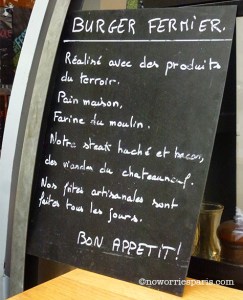 BURGER FERMIER.
Réalisé avec des produits
du terroir.
Pain maison,
Farine du moulin.
Notre steak haché et bacon,
des viandes du chateauneuf.
Nos frites artisanales sont
faites tous les jours.
BON APPETIT!
©noworriesparis.com